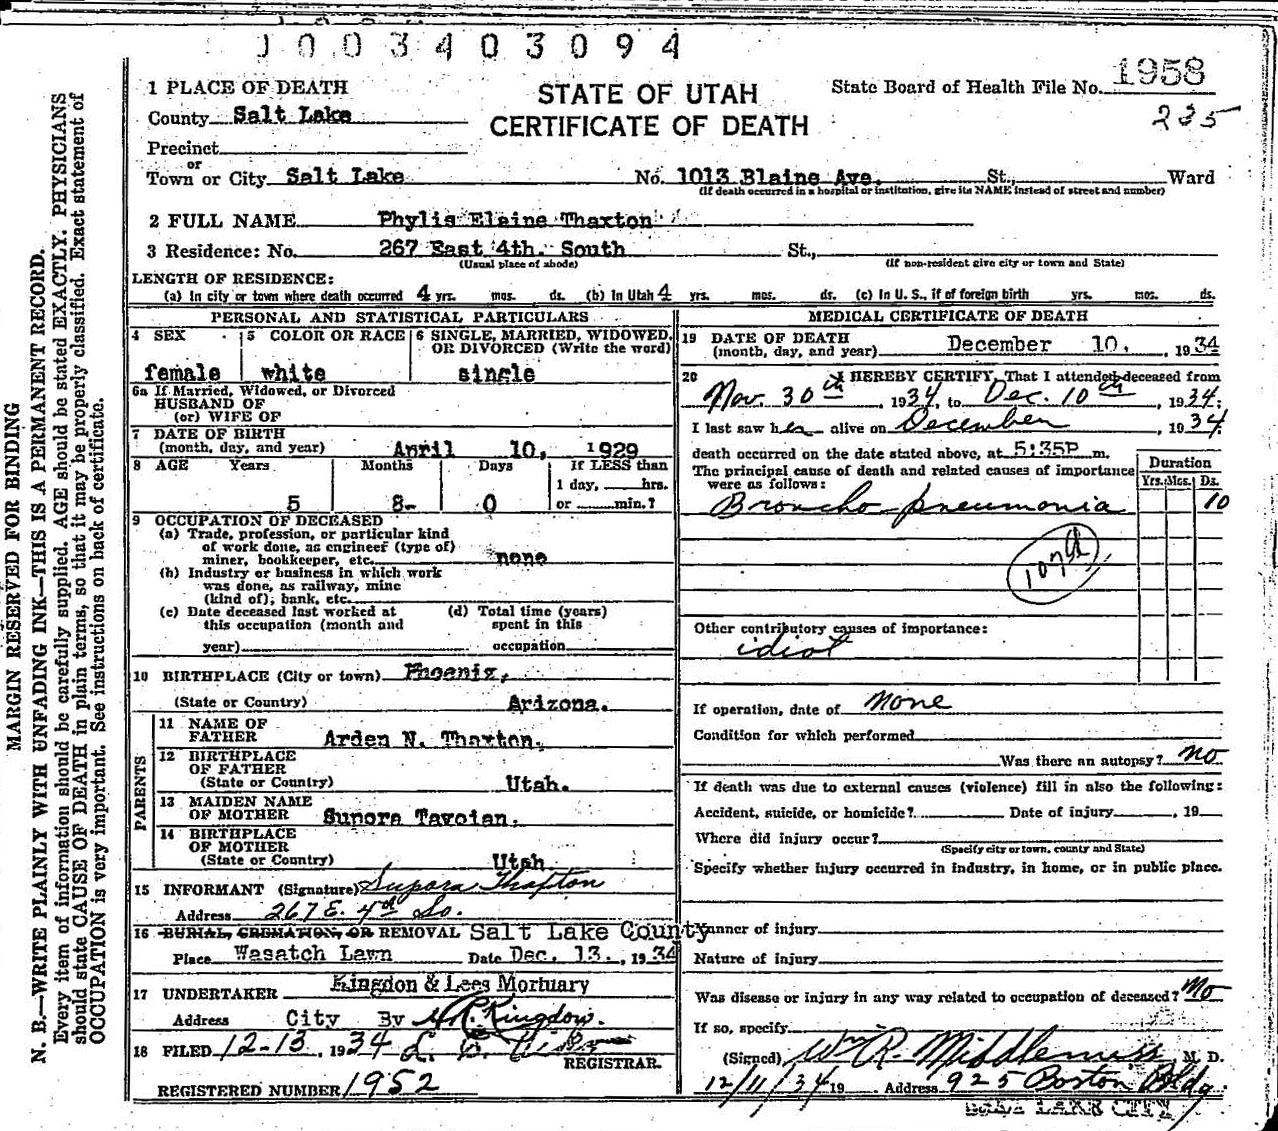 1003403094
1 PLACE OF DEATH
STATE OF UTAH
CERTIFICATE OF DEATH
State Board of Health File No. 1958
235
County Salt Lake
Precinct
or
Town or City Salt Lake No. 1013 Blaine Ave. St., Ward
(If death occurred in a hospital or institution, give its NAME instead of street and number)
2 FULL NAME Phylis Elaine Thaxton
3 Residence: No. 267 East 4th. South St.,
(Usual place of abode) (If non-resident give city or town and State)
LENGTH OF RESIDENCE:
(a) In city or town where death occurred 4 yrs. mos. ds. (b) In Utah 4 yrs. mos. ds. (c) In U. S., if of foreign birth yrs. mos. ds.
PERSONAL AND STATISTICAL PARTICULARS
4 SEX 5 COLOR OR RACE 6 SINGLE, MARRIED, WIDOWED, OR DIVORCED (Write the word)
female white single
6a If Married, Widowed, or Divorced
HUSBAND OF
(or) WIFE OF
7 DATE OF BIRTH
(month, day, and year) April 10, 1929
8 AGE Years Months Days If LESS than
1 day, hrs.
5 8- 0 or min.?
9 OCCUPATION OF DECEASED
(a) Trade, profession, or particular kind
of work done, as engineer (type of)
miner, bookkeeper, etc. none
(b) Industry or business in which work
was done, as railway, mine
(kind of); bank, etc.
(c) Date deceased last worked at (d) Total time (years)
this occupation (month and spent in this
year) occupation
10 BIRTHPLACE (City or town) Phoenix,
(State or Country) Arizona.
PARENTS
11 NAME OF
FATHER Arden N. Thaxton.
12 BIRTHPLACE
OF FATHER
(State or Country) Utah.
13 MAIDEN NAME
OF MOTHER Sunora Tavoian.
14 BIRTHPLACE
OF MOTHER
(State or Country) Utah
15 INFORMANT (Signature) Thaxton
Address 267 E. 4th So.
16 BURIAL, CREMATION, OR REMOVAL Salt Lake County
Place Wasatch Lawn Date Dec. 13. , 1934
17 UNDERTAKER Kingdon & Lees Mortuary
Address City By Kingdon.
18 FILED 12-13 , 1934
REGISTRAR.
REGISTERED NUMBER 1952
MEDICAL CERTIFICATE OF DEATH
19 DATE OF DEATH
(month, day, and year) December 10, , 1934
20 I HEREBY CERTIFY, That I attended deceased from
Nov. 30th , 1934, to Dec. 10th , 1934;
I last saw her alive on December , 1934
death occurred on the date stated above, at 5:35P m.
The principal cause of death and related causes of importance
were as follows:
Duration
Yrs. Mos. Ds.
Broncho pneumonia 10
107a
Other contributory causes of importance:
idiot
If operation, date of None
Condition for which performed
Was there an autopsy? no
If death was due to external causes (violence) fill in also the following:
Accident, suicide, or homicide? Date of injury , 19
Where did injury occur?
(Specify city or town, county and State)
Specify whether injury occurred in industry, in home, or in public place.
Manner of injury
Nature of injury
Was disease or injury in any way related to occupation of deceased? No
If so, specify
(Signed) Wm R. Middlemiss, M. D.
12/11/34 19 Address 925 Boston Bldg
SALT LAKE CITY
MARGIN RESERVED FOR BINDING
N. B.—WRITE PLAINLY WITH UNFADING INK—THIS IS A PERMANENT RECORD.
Every item of information should be carefully supplied. AGE should be stated EXACTLY. PHYSICIANS
should state CAUSE OF DEATH in plain terms, so that it may be properly classified. Exact statement of
OCCUPATION is very important. See instructions on back of certificate.